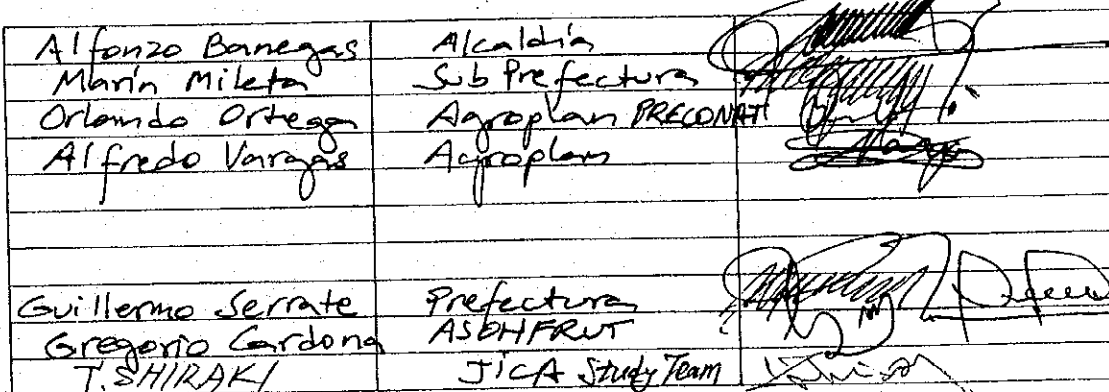 Alfonzo Banegas Alcaldía
Marín Mileta Sub Prefectura
Orlando Ortega Agroplan PRECONAT
Alfredo Vargas Agroplan
Guillermo Serrate Prefectura
Gregorio Cardona ASOHFRUT
T. SHIRAKI JICA Study Team